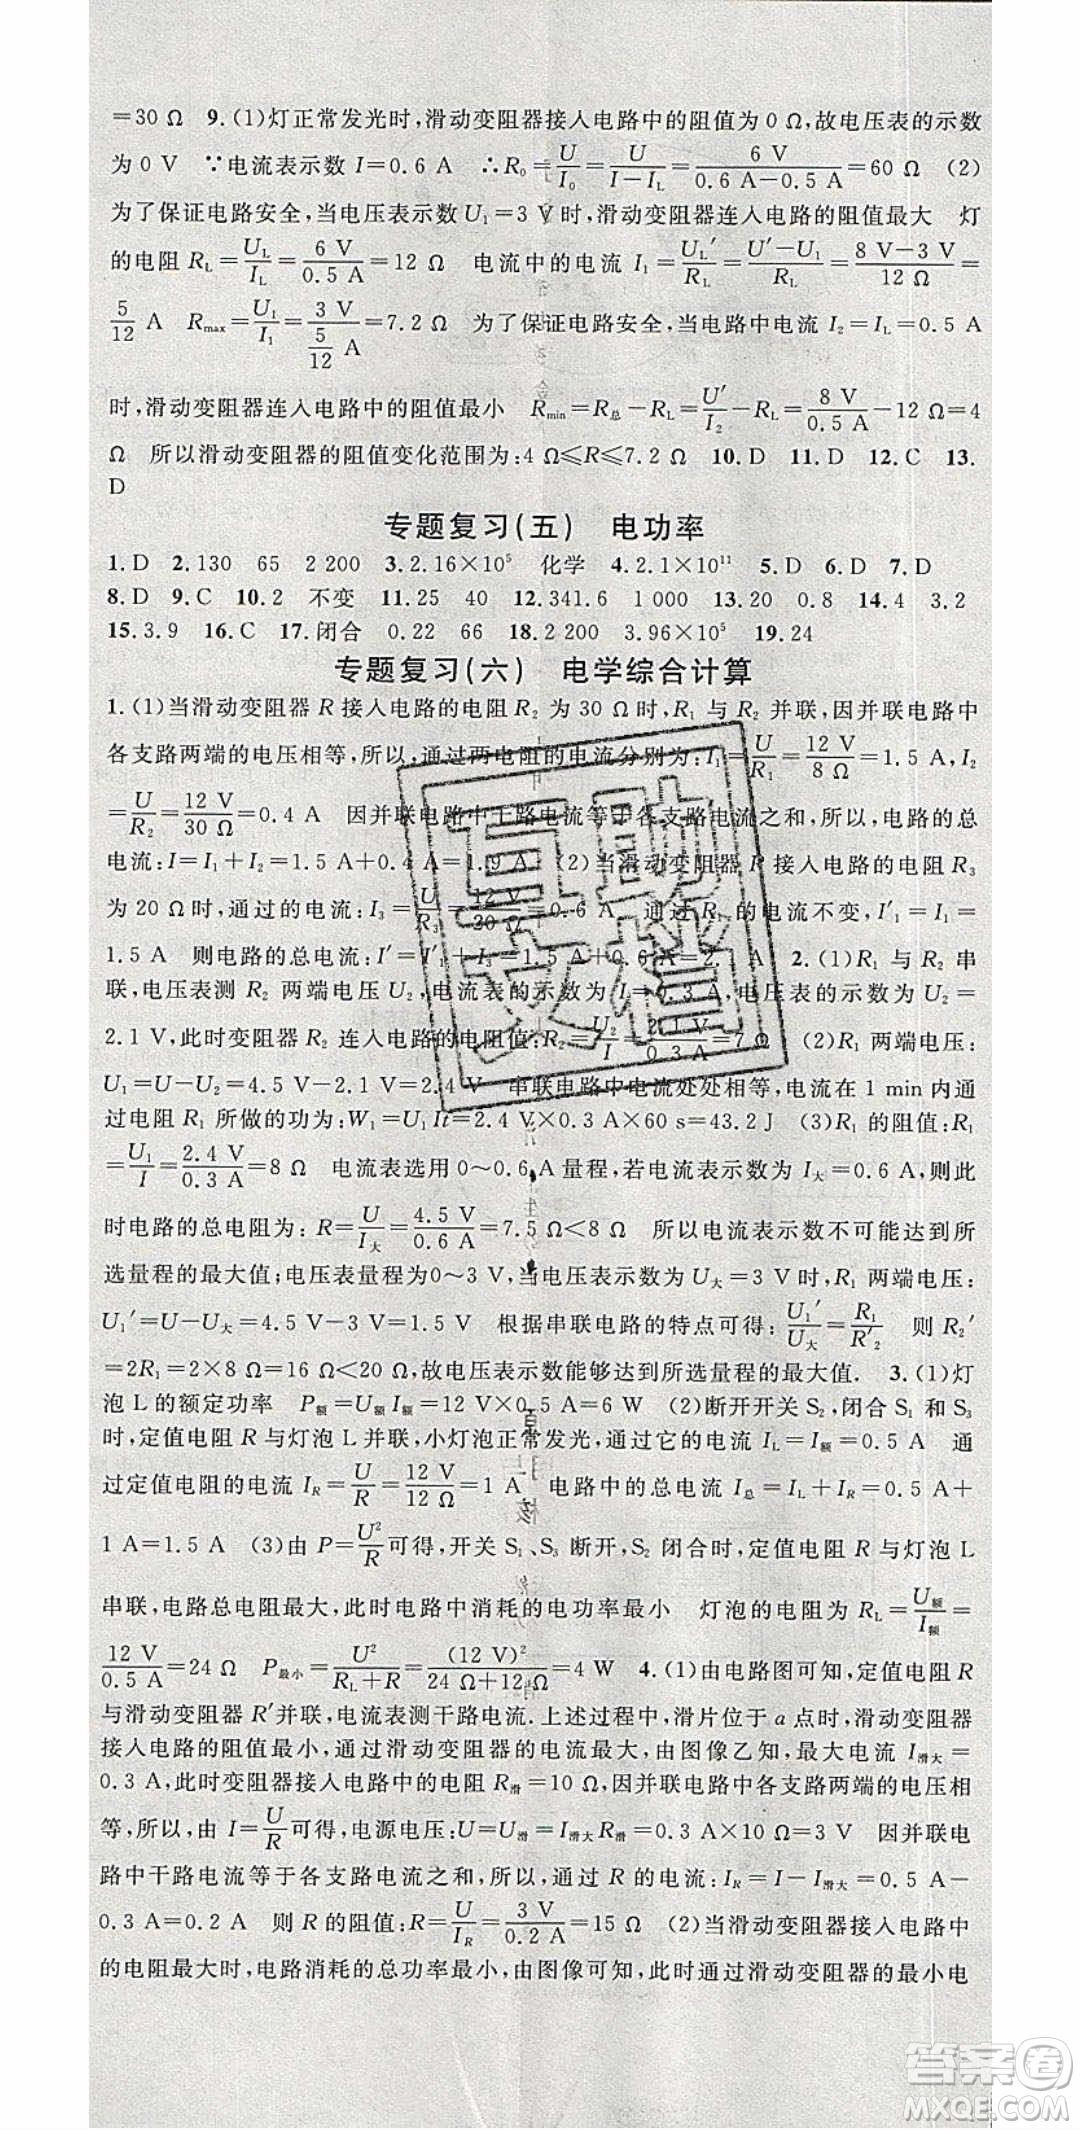 =30 Ω 9.(1)灯正常发光时,滑动变阻器接入电路中的阻值为 0 Ω,故电压表的示数
为 0 V ∵电流表示数 I=0.6 A ∴R₀=U/I₀=U/(I−I_L)=6 V/(0.6 A−0.5 A)=60 Ω (2)
为了保证电路安全,当电压表示数 U₁=3 V 时,滑动变阻器连入电路的阻值最大 灯
的电阻 R_L=U_L/I_L=6 V/0.5 A=12 Ω 电流中的电流 I₁=U_L′/R_L=(U′−U₁)/R_L=(8 V−3 V)/12 Ω=
5/12 A R_max=U₁/I₁=3 V/(5/12 A)=7.2 Ω 为了保证电路安全,当电路中电流 I₂=I_L=0.5 A
时,滑动变阻器连入电路中的阻值最小 R_min=R_总−R_L=U′/I₂−R_L=8 V/0.5 A−12 Ω=4
Ω 所以滑动变阻器的阻值变化范围为:4 Ω≤R≤7.2 Ω 10.D 11.D 12.C 13.
D
专题复习(五) 电功率
1.D 2.130 65 2 200 3.2.16×10⁵ 化学 4.2.1×10¹¹ 5.D 6.D 7.D
8.D 9.C 10.2 不变 11.25 40 12.341.6 1 000 13.20 0.8 14.4 3.2
15.3.9 16.C 17.闭合 0.22 66 18.2 200 3.96×10⁵ 19.24
专题复习(六) 电学综合计算
1.(1)当滑动变阻器 R 接入电路的电阻 R₂ 为 30 Ω时,R₁ 与 R₂ 并联,因并联电路中
各支路两端的电压相等,所以,通过两电阻的电流分别为:I₁=U/R₁=12 V/8 Ω=1.5 A,I₂
=U/R₂=12 V/30 Ω=0.4 A 因并联电路中干路电流等于各支路电流之和,所以,电路的总
电流:I=I₁+I₂=1.5 A+0.4 A=1.9 A (2)当滑动变阻器 R 接入电路的电阻 R₃
为 20 Ω时,通过的电流:I₃=U/R₃=12 V/20 Ω=0.6 A 通过 R₁ 的电流不变,I′₁=I₁=
1.5 A 则电路的总电流:I′=I′₁+I₃=1.5 A+0.6 A=2.1 A 2.(1)R₁ 与 R₂ 串
联,电压表测 R₂ 两端电压 U₂,电流表的示数为 I=0.3 A,电压表的示数为 U₂=
2.1 V,此时变阻器 R₂ 连入电路的电阻值:R₂=U₂/I=2.1 V/0.3 A=7 Ω (2)R₁ 两端电压:
U₁=U−U₂=4.5 V−2.1 V=2.4 V 串联电路中电流处处相等,电流在 1 min内通
过电阻 R₁ 所做的功为:W₁=U₁It=2.4 V×0.3 A×60 s=43.2 J (3)R₁ 的阻值:R₁
=U₁/I=2.4 V/0.3 A=8 Ω 电流表选用 0～0.6 A量程,若电流表示数为 I_大=0.6 A,则此
时电路的总电阻为:R=U/I_大=4.5 V/0.6 A=7.5 Ω<8 Ω 所以电流表示数不可能达到所
选量程的最大值;电压表量程为0～3 V,当电压表示数为 U_大=3 V时,R₁ 两端电压:
U₁′=U−U_大=4.5 V−3 V=1.5 V 根据串联电路的特点可得:U₁′/U_大=R₁/R′₂ 则 R₂′
=2R₁=2×8 Ω=16 Ω<20 Ω,故电压表示数能够达到所选量程的最大值. 3.(1)灯
泡 L 的额定功率 P_额=U_额I_额=12 V×0.5 A=6 W (2)断开开关 S₂,闭合 S₁ 和 S₃
时,定值电阻 R 与灯泡 L 并联,小灯泡正常发光,通过它的电流 I_L=I_额=0.5 A 通
过定值电阻的电流 I_R=U/R=12 V/12 Ω=1 A 电路中的总电流 I_总=I_L+I_R=0.5 A+
1 A=1.5 A (3)由 P=U²/R可得,开关 S₁、S₃ 断开,S₂ 闭合时,定值电阻 R 与灯泡 L
串联,电路总电阻最大,此时电路中消耗的电功率最小 灯泡的电阻为 R_L=U_额/I_额=
12 V/0.5 A=24 Ω P_最小=U²/(R_L+R)=(12 V)²/(24 Ω+12 Ω)=4 W 4.(1)由电路图可知,定值电阻 R
与滑动变阻器 R′并联,电流表测干路电流.上述过程中,滑片位于 a 点时,滑动变阻器
接入电路的阻值最小,通过滑动变阻器的电流最大,由图像乙知,最大电流 I_滑大=
0.3 A,此时变阻器接入电路中的电阻 R_滑=10 Ω,因并联电路中各支路两端的电压相
等,所以,由 I=U/R可得,电源电压:U=U_滑=I_滑大R_滑=0.3 A×10 Ω=3 V 因并联电
路中干路电流等于各支路电流之和,所以,通过 R 的电流:I_R=I−I_滑大=0.5 A−
0.3 A=0.2 A 则 R 的阻值:R=U/I_R=3 V/0.2 A=15 Ω (2)当滑动变阻器接入电路中
的电阻最大时,电路消耗的总功率最小,由图像可知,此时通过滑动变阻器的最小电
互助
文档
答案卷
MXQE.COM